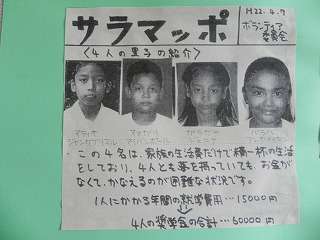 サラマッポ
H22.4.9
ボランティア
委員会
〈4人の里子の紹介〉
・この4名は、家族の生活費だけで精一杯の生活
をしており、4人とも夢を持っていても、お金が
なくて、かなえるのが困難な状況です。
1人にかかる年間の就学費用…15000円
4人の奨学金の合計…60000円